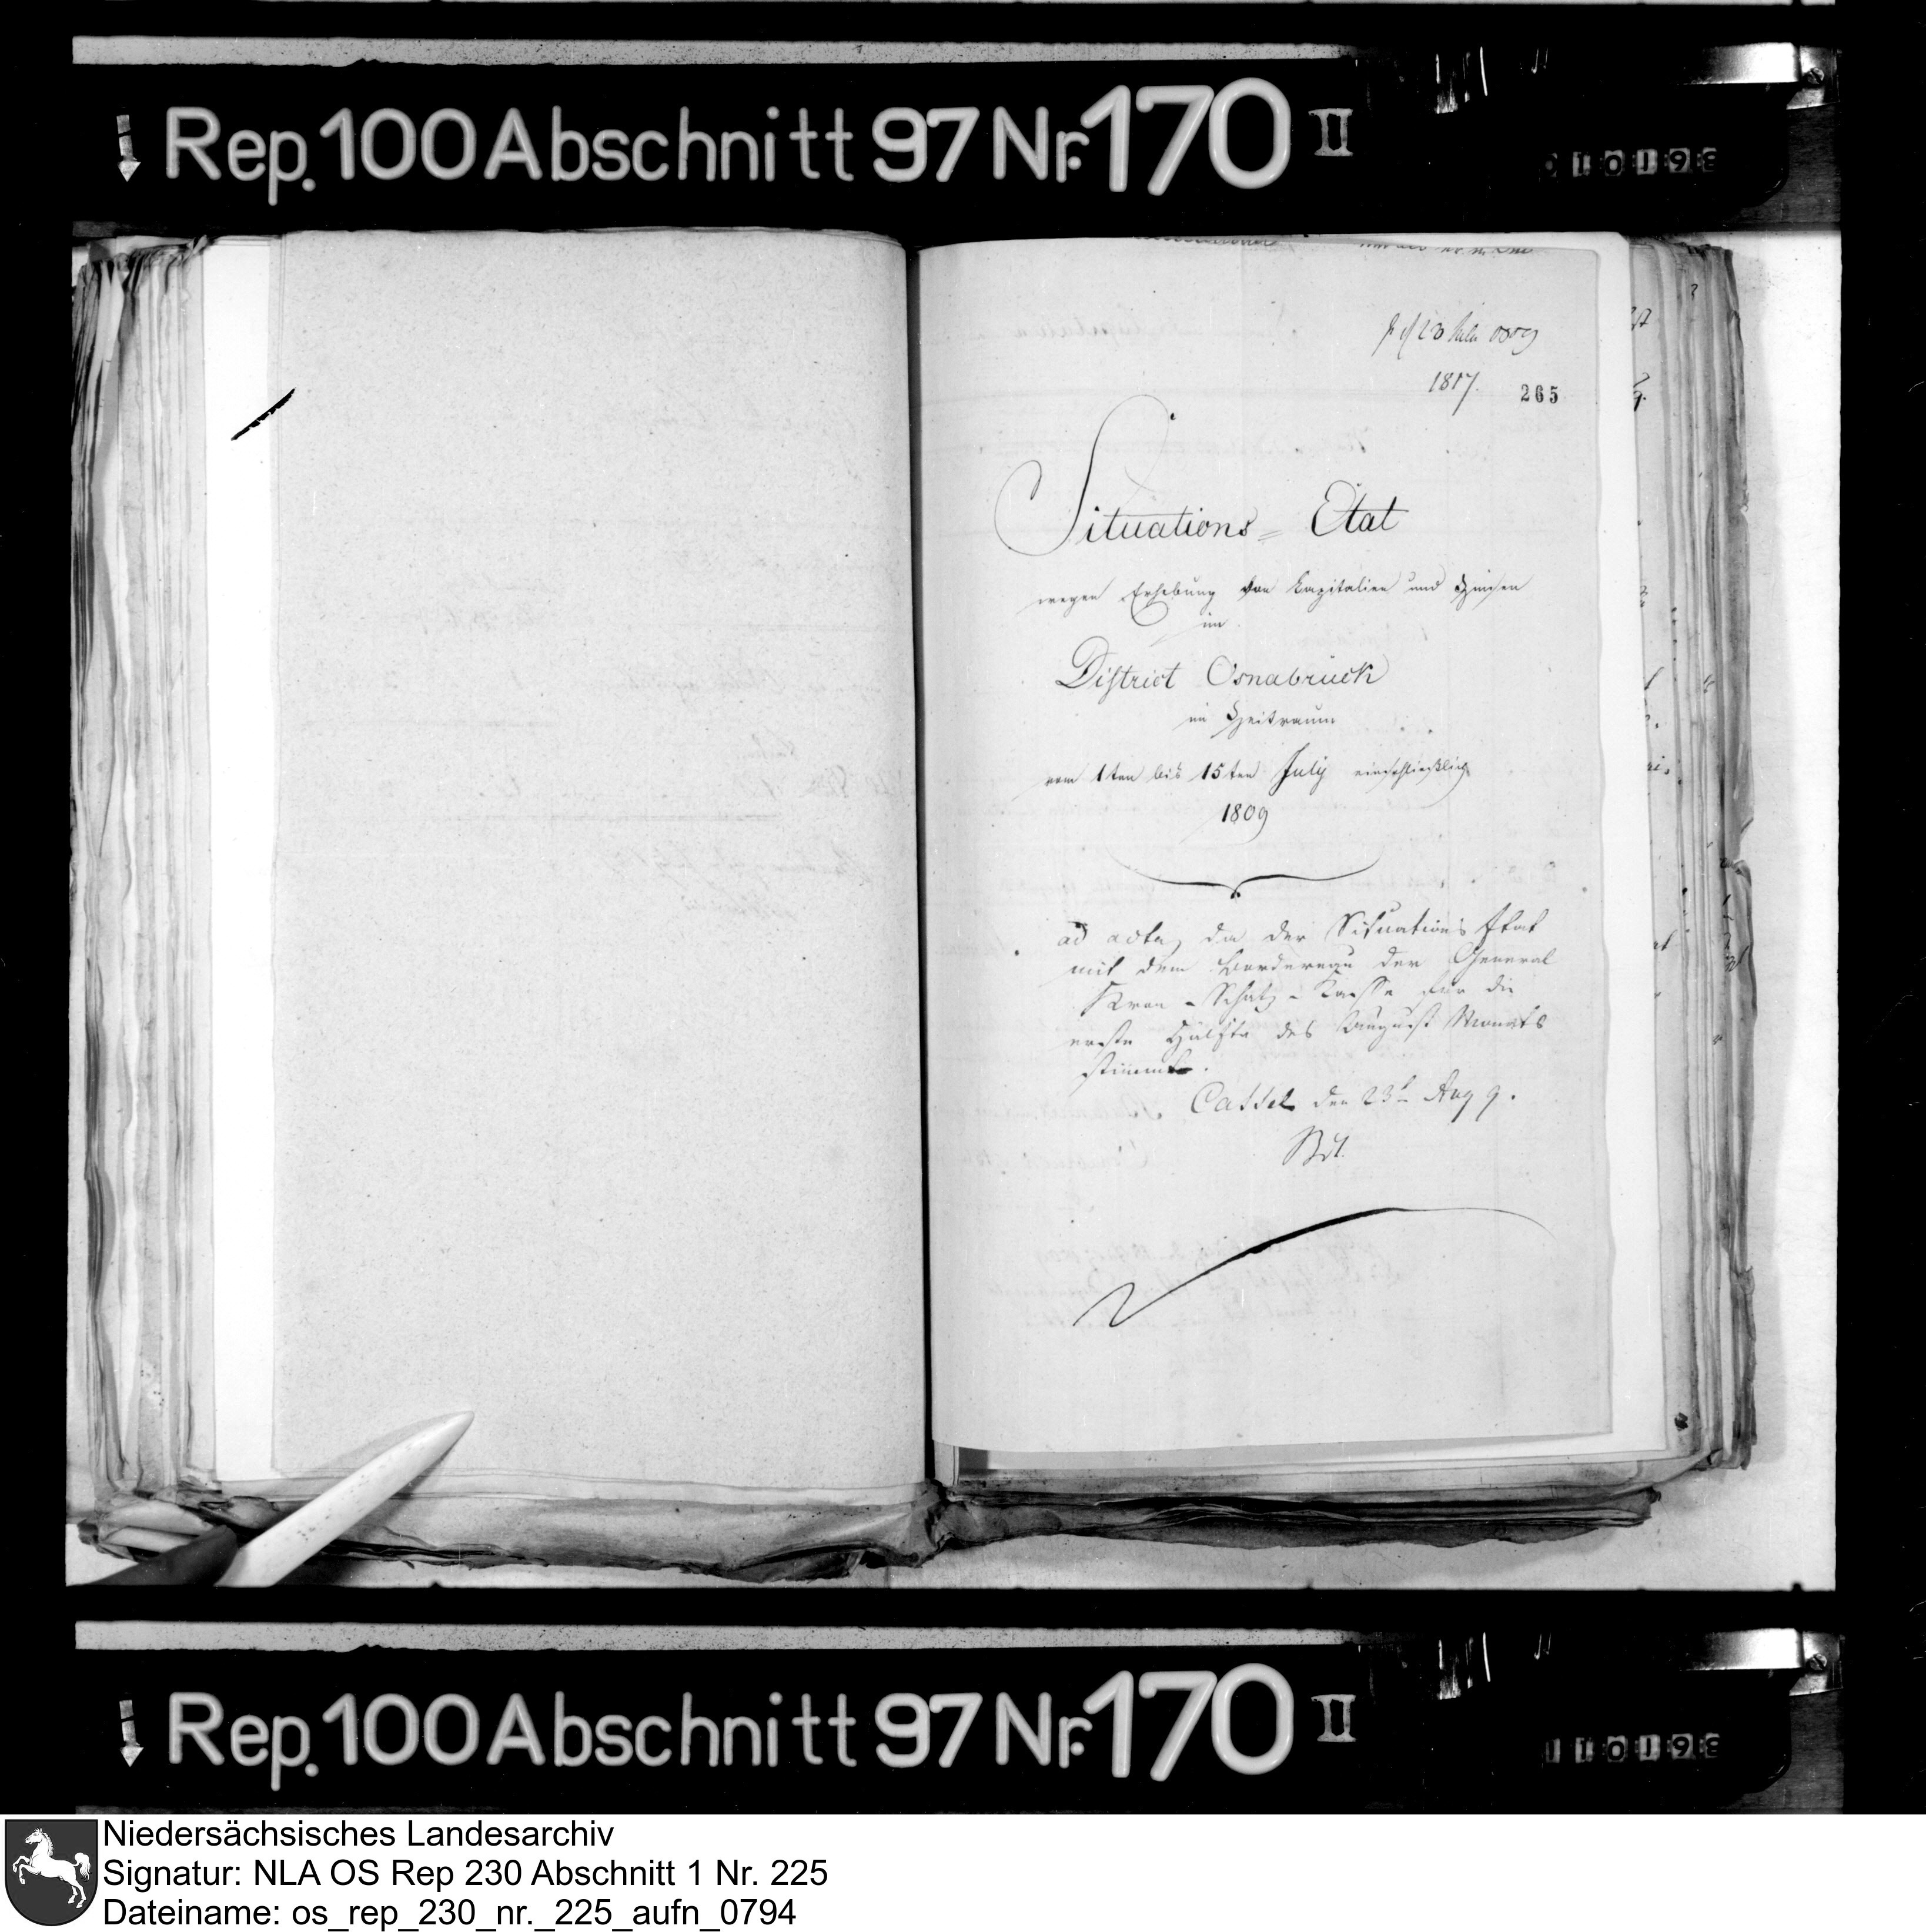 Rep. 100 Abschnitt 97 Nr. 170 II
1817.
265
Situations = Etat
wegen Erhebung von Kapitalien und Zinsen
im
District Osnabrück
im Zeitraum
vom 1ten bis 15ten July einschließlich
1809
ad acta, da der Situations Etat
mit dem Bordereau der General
Kron - Schatz - Kasse für die
erste Hälfte des August Monats
stimmt.
Cassel den 23t Aug 9.
Rep. 100 Abschnitt 97 Nr. 170 II
Niedersächsisches Landesarchiv
Signatur: NLA OS Rep 230 Abschnitt 1 Nr. 225
Dateiname: os_rep_230_nr._225_aufn_0794